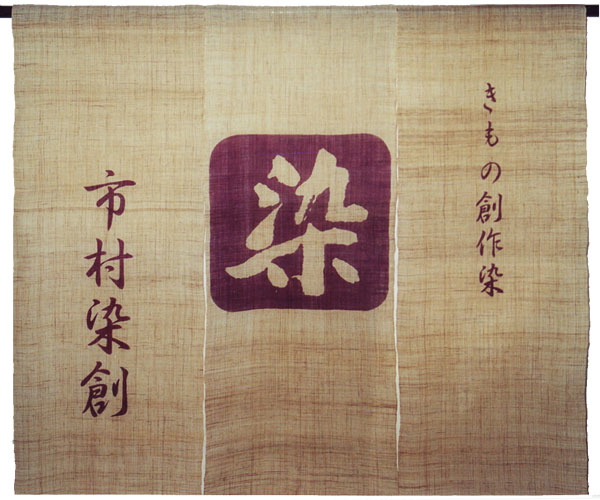 きもの創作染
染
市村染創